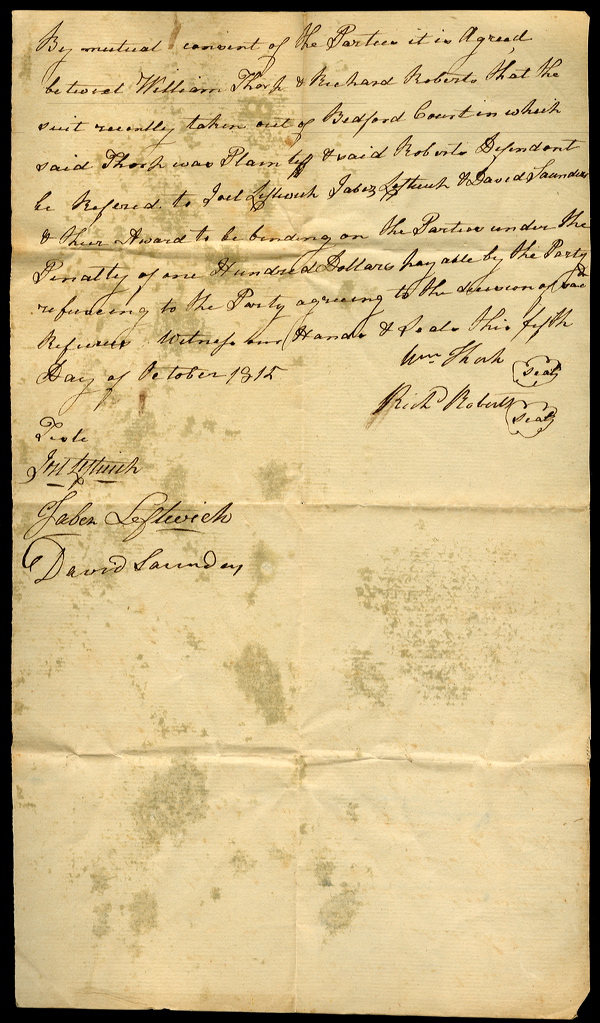 By mutual consent of the Parties it is Agreed
betwixt William Thorp & Richard Roberts that the
suit recently taken out of Bedford Court in which
said Thorp was Plaintiff & said Roberts Defendant
be Refered to Joel Leftwich Jabez Leftwich & David Saunders
& their Award to be binding on the Parties under the
Penalty of one Hundred Dollars payable by the Party
refuseing to the Party agreeing to the decision of said
Referees Witness our Hands & Seals this fifth
Day of October 1815
Wm Thorp Seal
Richd Roberts Seal
Teste
Joel Leftwich
Jabez Leftwich
David Saunders